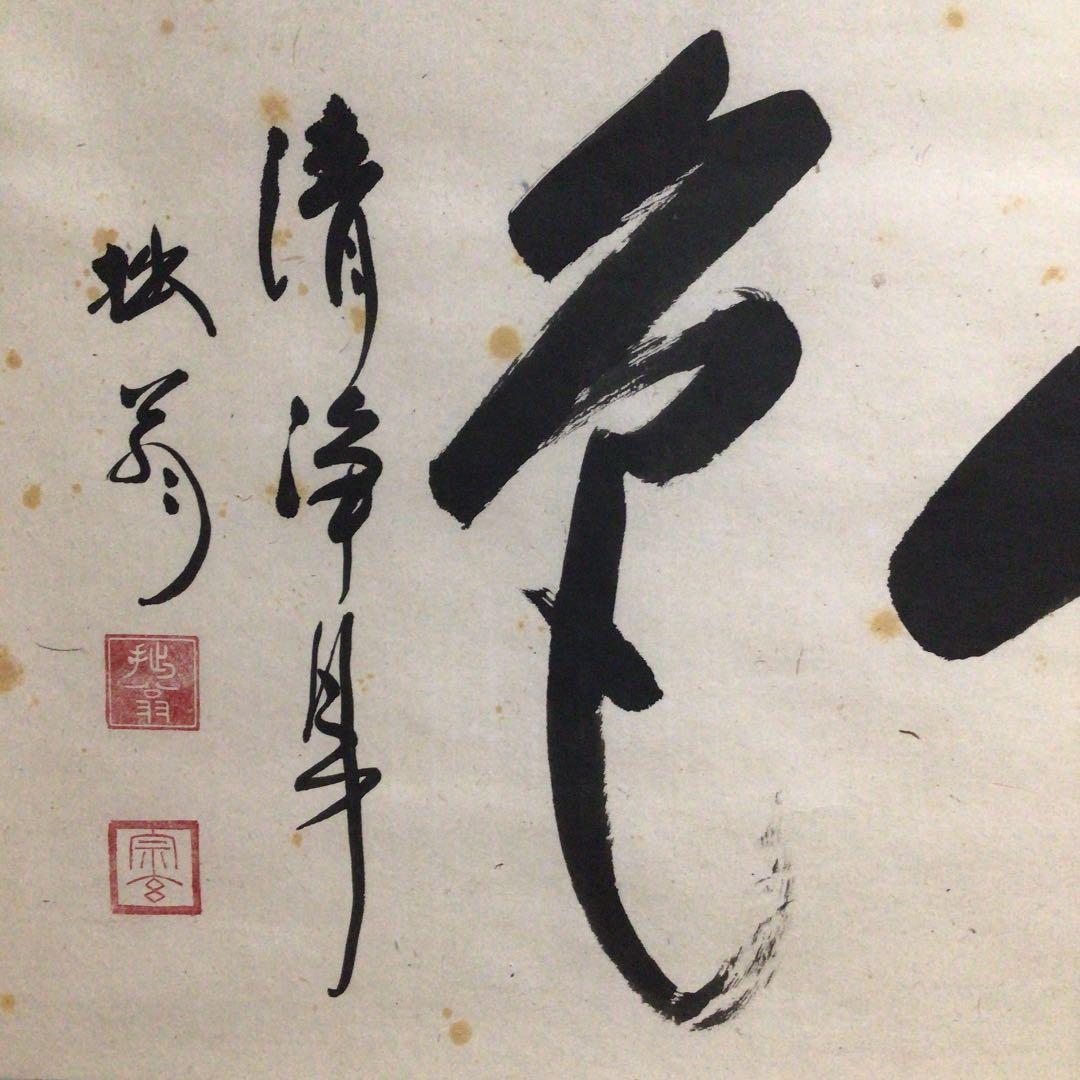 色
清浄身
拙翁
拙翁
宗玄